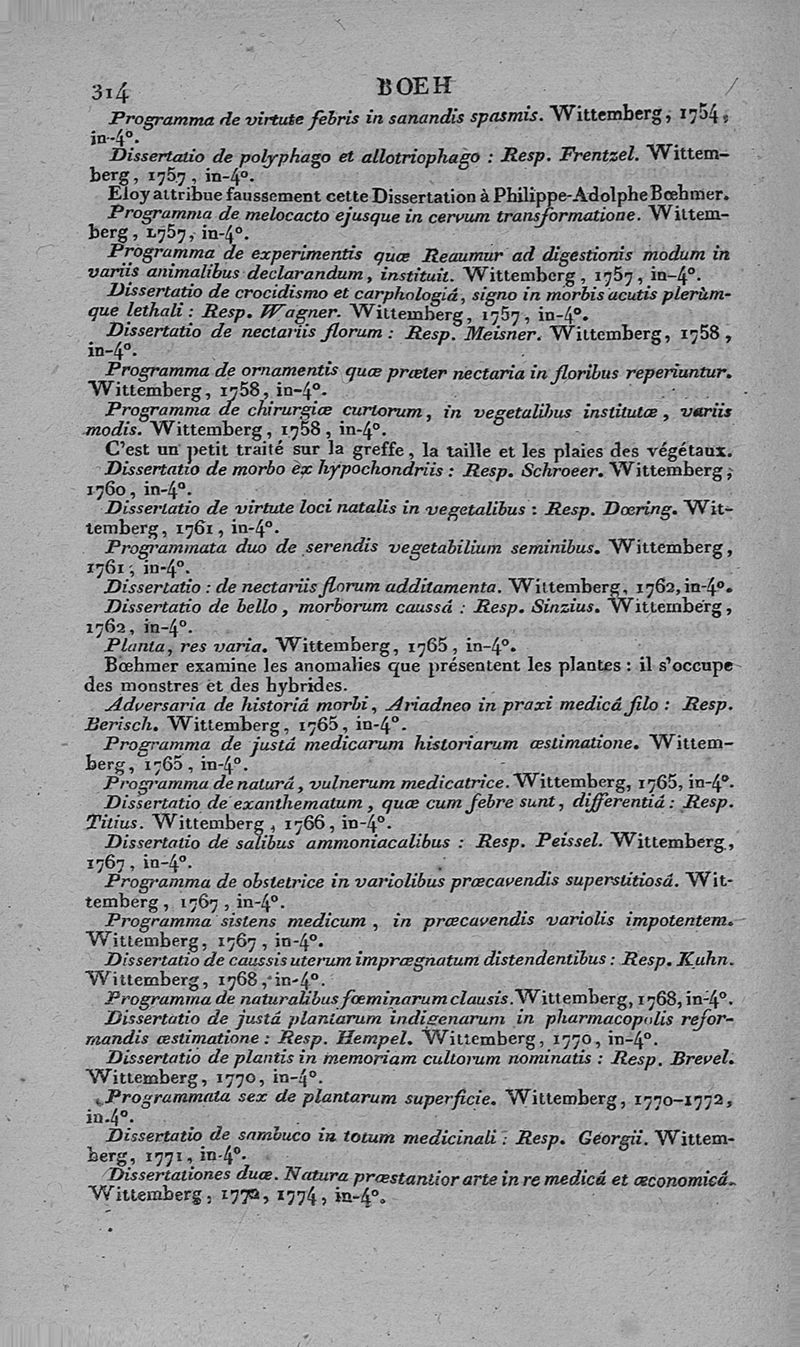 314 BOEH
Programma de virtute febris in sanandis spasmis. Wittemberg, 1754,
in-4°.
Dissertatio de polyphago et allotriophago : Resp. Frentzel. Wittem-
berg, 1757, in-4°.
Eloy attribue faussement cette Dissertation à Philippe-Adolphe Bœhmer.
Programma de melocacto ejusque in cervum transformatione. Wittem-
berg, 1757, in-4°.
Programma de experimentis quæ Reaumur ad digestionis modum in
variis animalibus declarandum, instituit. Wittemberg, 1757, in-4°.
Dissertatio de crocidismo et carphologiá, signo in morbis acutis plerùm-
que lethali : Resp. Wagner. Wittemberg, 1757, in-4°.
Dissertatio de nectariis florum : Resp. Meisner. Wittemberg, 1758,
in-4°.
Programma de ornamentis quæ præter nectaria in floribus reperiuntur.
Wittemberg, 1758, in-4°.
Programma de chirurgiæ curtorum, in vegetalibus institutæ, variis
modis. Wittemberg, 1758, in-4°.
C'est un petit traité sur la greffe, la taille et les plaies des végétaux.
Dissertatio de morbo ex hypochondriis : Resp. Schroeer. Wittemberg,
1760, in-4°.
Dissertatio de virtute loci natalis in vegetalibus : Resp. Dœring. Wit-
temberg, 1761, in-4°.
Programmata duo de serendis vegetabilium seminibus. Wittemberg,
1761, in-4°.
Dissertatio : de nectariis florum additamenta. Wittemberg, 1762, in-4°.
Dissertatio de bello, morborum caussá : Resp. Sinzius. Wittemberg,
1762, in-4°.
Planta, res varia. Wittemberg, 1765, in-4°.
Bœhmer examine les anomalies que présentent les plantes : il s'occupe
des monstres et des hybrides.
Adversaria de historiá morbi, Ariadneo in praxi medicá filo : Resp.
Berisch. Wittemberg, 1765, in-4°.
Programma de justá medicarum historiarum æstimatione. Wittem-
berg, 1765, in-4°.
Programma de naturá, vulnerum medicatrice. Wittemberg, 1765, in-4°.
Dissertatio de exanthematum, quæ cum febre sunt, differentiá : Resp.
Titius. Wittemberg, 1766, in-4°.
Dissertatio de salibus ammoniacalibus : Resp. Peissel. Wittemberg,
1767, in-4°.
Programma de obstetrice in variolibus præcavendis superstitiosá. Wit-
temberg, 1767, in-4°.
Programma sistens medicum, in præcavendis variolis impotentem.
Wittemberg, 1767, in-4°.
Dissertatio de caussis uterum imprægnatum distendentibus : Resp. Kuhn.
Wittemberg, 1768, in-4°.
Programma de naturalibus fœminarum clausis. Wittemberg, 1768, in-4°.
Dissertatio de justá plantarum indigenarum in pharmacopolis refor-
mandis æstimatione : Resp. Hempel. Wittemberg, 1770, in-4°.
Dissertatio de plantis in memoriam cultorum nominatis : Resp. Brevel.
Wittemberg, 1770, in-4°.
Programmata sex de plantarum superficie. Wittemberg, 1770-1772,
in-4°.
Dissertatio de sambuco in totum medicinali : Resp. Georgii. Wittem-
berg, 1771, in-4°.
Dissertationes duæ. Natura præstantior arte in re medicá et œconomicá.
Wittemberg, 1772, 1774, in-4°.